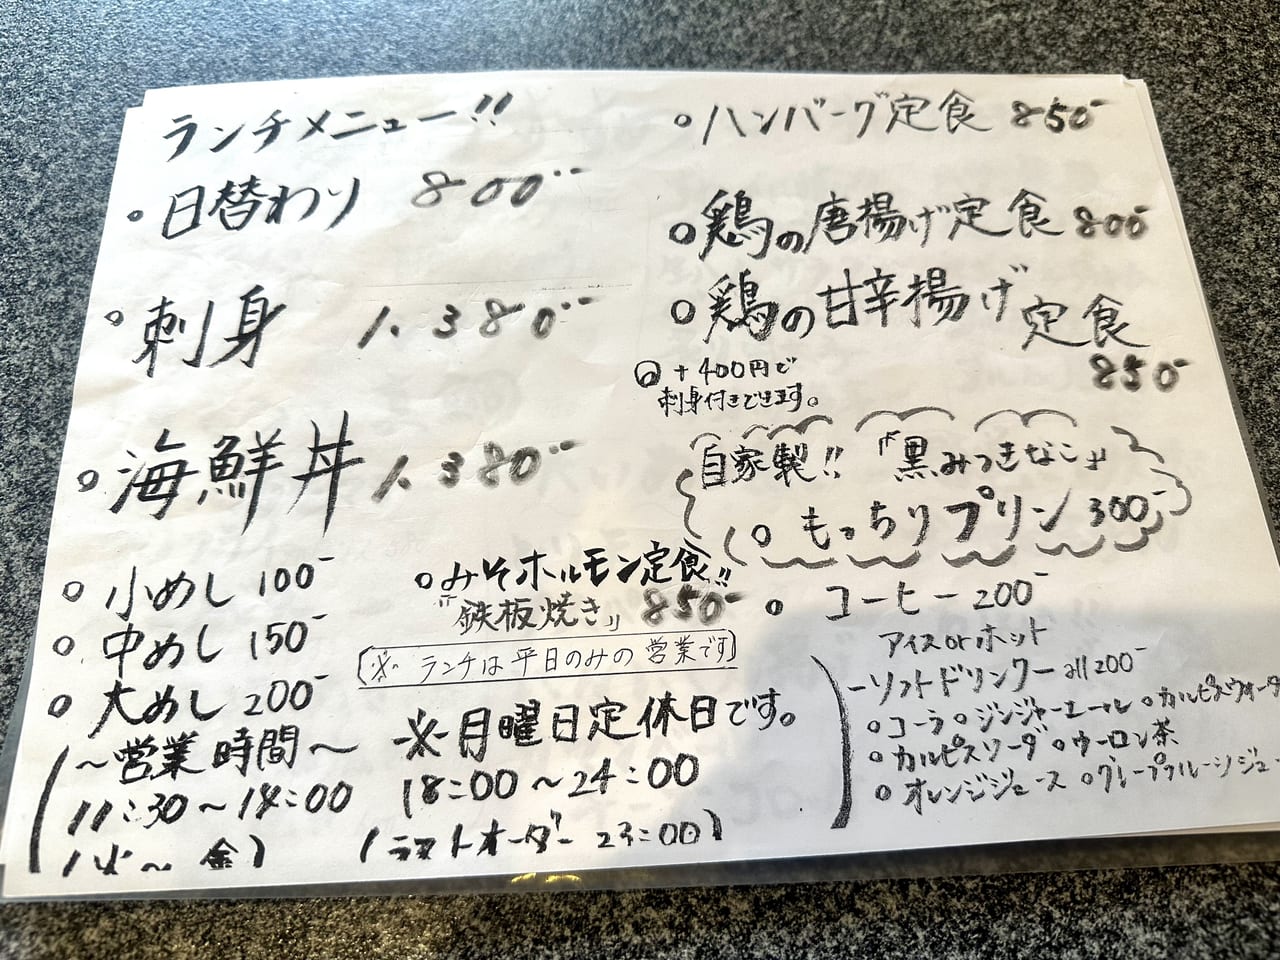 ランチメニュー!!
○日替わり 800-
○刺身 1.380-
○海鮮丼 1.380-
○小めし 100-
○中めし 150-
○大めし 200-
○みそホルモン定食!!
『鉄板焼き』 850-
(※ ランチは平日のみの営業です)
～営業時間～
11:30～14:00
(火～金)
※月曜日定休日です。
18:00～24:00
(ラストオーダー 23:00)
○ハンバーグ定食 850-
○鶏の唐揚げ定食 800-
○鶏の甘辛揚げ定食
850-
◎+400円で
刺身付きできます。
自家製!!『黒みつきなこ』
○もっちりプリン 300-
○コーヒー 200-
アイスorホット
ーソフトドリンクー all 200-
○コーラ ○ジンジャーエール ○カルピスウォータ
○カルピスソーダ ○ウーロン茶
○オレンジジュース ○グレープフルーツジュー